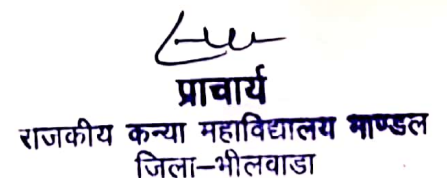 प्राचार्य
राजकीय कन्या महाविद्यालय माण्डल
जिला-भीलवाडा